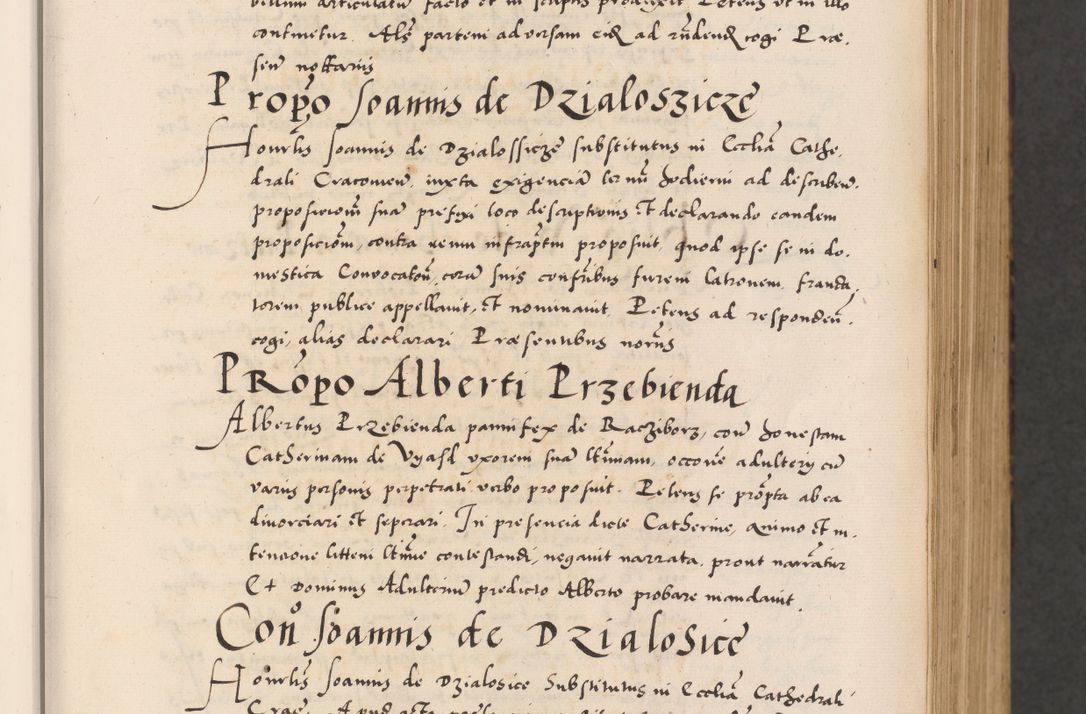 billum articulatim facto et in scriptis produxit. Petens ut in illo
continetur. Als partem adversam eidē ad rñdendū cogi Præ,
sen nottariis
Propō Joannis de Dzialoszicze
Honrlis Joannis de Dzialossicze substitutus in Eccliā Cathe,
drali Cracovien, iuxta exigenciā termī hodierni ad describen,
proposicionē suā prefixi loco descriptionis et declarando eandem
proposicionē, contra venī infraptm proposuit, quod ipse se in do,
mestica Convocatōn, corā suis confribus furem latronem, frauda,
torem publice appellavit, et nominavit, Petens ad respondeñ,
cogi, alias declarari. Præsentibus norīis
Propō Alberti Przebienda
Albertus Przebienda pannifex de Racziborz, con honestam
Catherinam de Vyasd uxorem suā ltīmam, occōne adulterij cū
variis personis perpetrati verbo proposuit. Petens se prōpta ab ea
divorciari et seperari. In presencia dicte Catherine, animo et in,
tencione litteni ltīme contestandi, negavit narrata, prout narrātur
Et Dominus Adulteriū predicto Alberto probare mandavit.
Con Joannis de Dzialosice
Honrlis Joannis de Dzialosice Substitutus in Eccliā Cathedrali